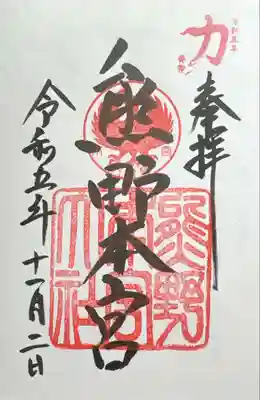 奉拝
熊野本宮
令和五年十一月二日
力
熊野本宮大社